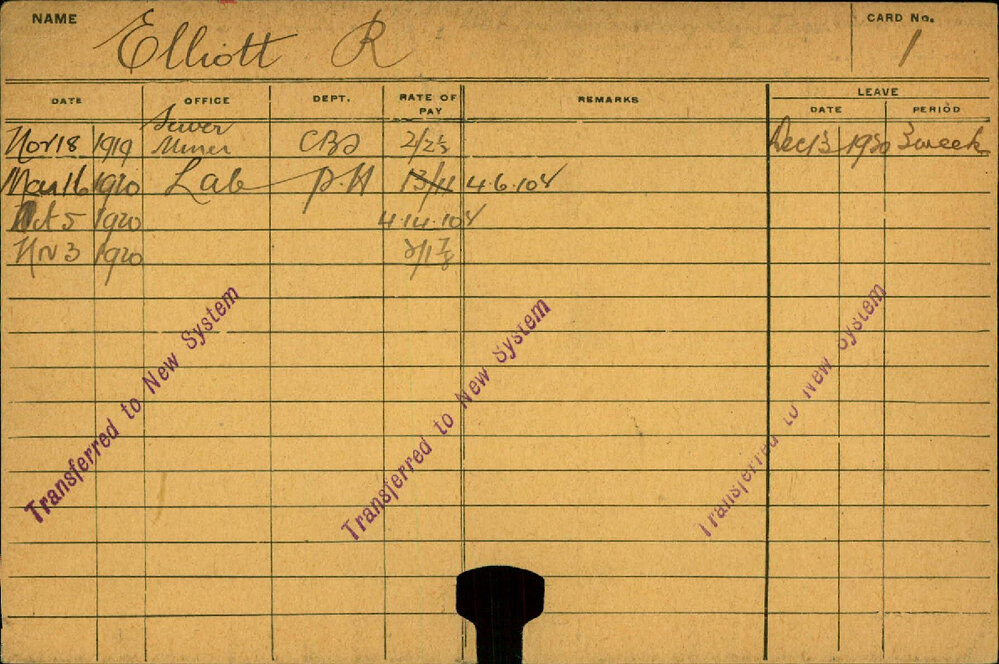 NAME Elliott R CARD No. 1
DATE OFFICE DEPT. RATE OF PAY REMARKS LEAVE
DATE PERIOD
Nov 18 1919 Sewer Miner 2/2½ Dec 13 1920 3 week
Mar 16 1920 Lab P.H 13/11 4.6.10
Oct 5 1920 4.14.10
Nov 3 1920 2/1⅞
Transferred to New System
Transferred to New System
Transferred to New System